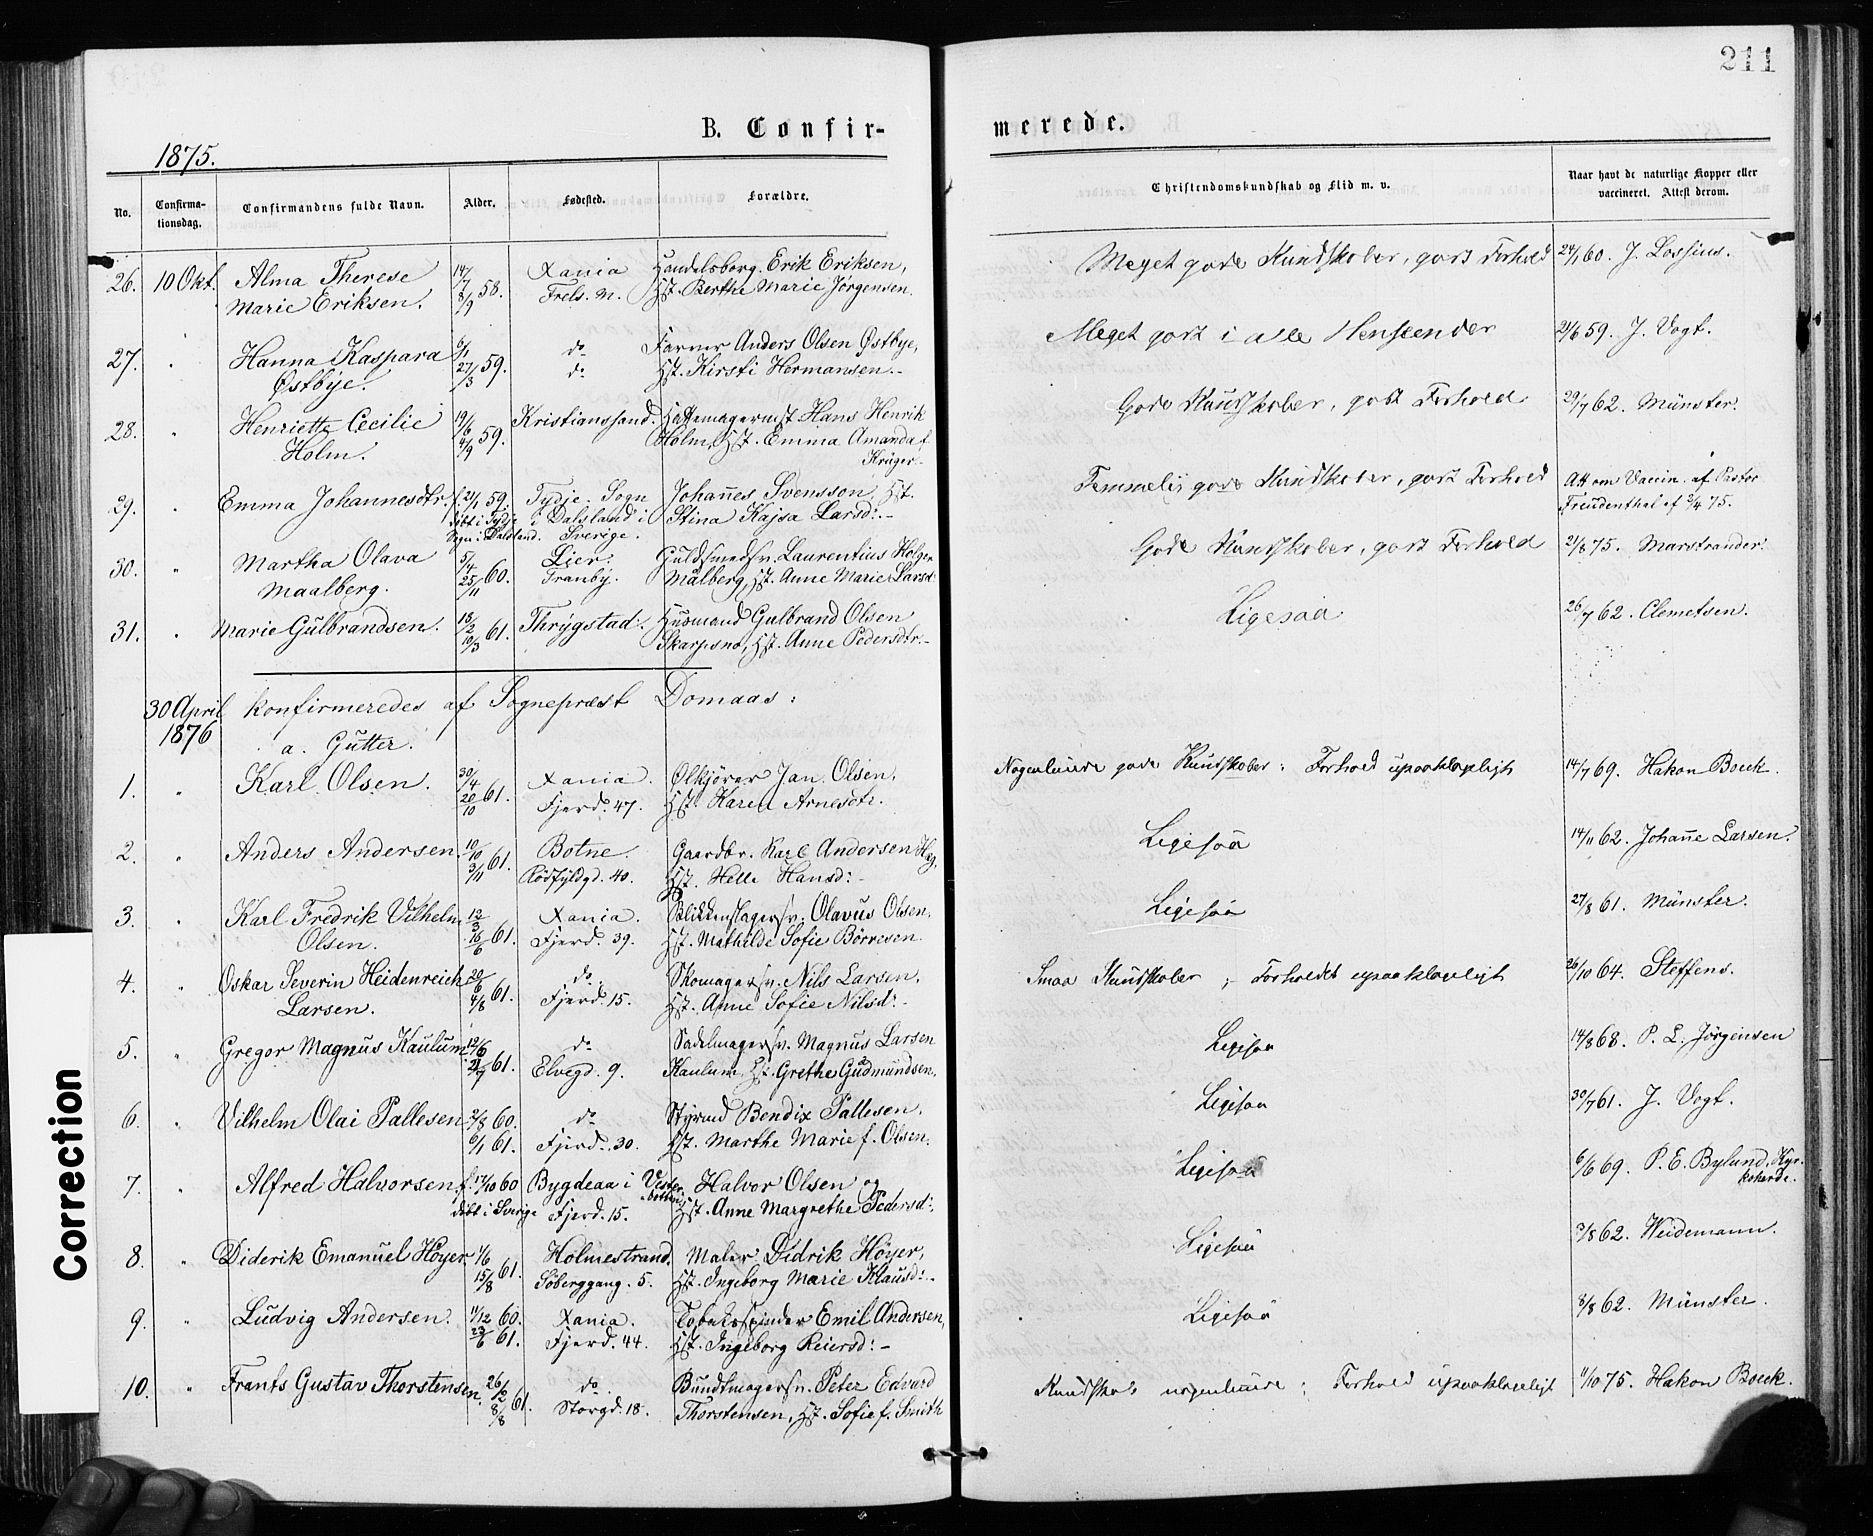 211
B. Confir-
merede.
1875.
No.
Confirma-
tionsdag.
Confirmandens fulde Navn.
Alder.
Fødested.
Forældre.
Christendomskundskab og Flid m. v.
Naar havt de naturlige Kopper eller
vaccineret. Attest derom.
26. 10 Okt. Alma Therese 14/7 Xania Handelsborg. Erik Eriksen, Meget gode Kundskaber, godt Forhold 24/1 60. J. Lossius.
Marie Eriksen. 8/9 58. Frels. M. Hst. Berthe Marie Jørgensen.
27. " Hanna Kaspara 6/1 do Farver Anders Olsen Østbye, Meget godt i alle Henseender 21/6 59. J. Vogt.
Østbye. 27/3 59. do Hst. Kirsti Hermansen.-
28. " Henriette Cecilie 19/6 Kristianssand. Hattemagermst Hans Henrik Gode Kundskaber, godt Forhold 29/7 62. Münster.
Holm. 4/9 59. Holm, Hst. Emma Amanda f.
Krüger.-
29. " Emma Johannesdtr. f. 21/1 59. Tydje Sogn Johannes Svensson, Hst. Temmelig gode Kundskaber, godt Forhold Att om Vaccin. af Pastor
døbt i Tydje i Dalsland i Stina Kajsa Larsd:.- Freudenthal af 2/4 75.
Sogn i Dalsland. Sverige.
30. " Martha Olava 5/4 Lier. Guldsmedsv. Laurentius Holger Gode Kundskaber, godt Forhold 21/8 75. Marstrander.
Maalberg. 25/11 60. Tranby. Målberg, Hst. Anne Marie Larsd:
31. " Marie Gulbrandsen. 13/2 61. Thrygstad. Husmand Gulbrand Olsen Ligesaa 26/7 62. Clemetsen.
10/3 Skarpsno, Hst. Anne Pedersdtr.-
30 April konfirmeredes af Sognepræst Domaas:
1876 a. Gutter.
1. " Karl Olsen. 30/4 Xania. Ølkjører Jan Olsen, Nogenlunde gode Kundskaber; Forhold upaaklageligt 14/7 69. Hakon Boeck.
20/10 61. Fjerd. 47. Hst. Karen Arnesdtr.
2. " Anders Andersen. 10/10 Botne. Gaardbr. Karl Andersen Hag, Ligesaa 14/11 62. Johanne Larsen.
3/11 61. Rödfyldgd. 40. Hst. Helle Hansd:-
3. " Karl Fredrik Vilhelm 12/3 Xania. Blikkenslagersv. Olavus Olsen, Ligesaa 27/8 61. Münster.
Olsen. 16/6 61. Fjerd. 39. Hst. Mathilde Sofie Börresen.
4. " Oskar Severin Heidenreich 20/6 do Skomagersv. Nils Larsen, Smaa Kundskaber; - Forholdet upaaklageligt 26/10 64. Steffens.
Larsen. 4/8 61. Fjerd. 15. Hst. Anne Sofie Nilsd:-
5. " Gregor Magnus Kaulum. 12/6 do Sadelmagersv. Magnus Larsen Ligesaa 14/8 68. P. L. Jörgensen
21/7 61. Elvegd. 9. Kaulum, Hst. Grethe Gudmundsen.
6. " Vilhelm Olai Pallesen 2/8 60. do Styrmd Bendix Pallesen. Ligesaa 30/7 61. J. Vogt.
6/1 61. Fjerd. 30. Hst. Marthe Marie f. Olsen.
7. " Alfred Halvorsen f. 17/10 60 Bygdeaa i Vester- Halvor Olsen og Ligesaa 6/6 69. P. E. Bylund, Kyr-
døbt i Sverige botten. Fjerd. 15. Hst. Anne Margrethe Pedersd:. koherde.
8. " Diderik Emanuel Höyer. 1/6 Holmestrand. Maler Didrik Höyer, Ligesaa 3/8 62. Weidemann.
15/8 61. Söberggang. 5. Hst. Ingeborg Marie Klausd:.-
9. " Ludvig Andersen. 11/12 60. Xania. Tobaksspinder Emil Andersen, Ligesaa 8/8 62. Münster.
23/6 61. Fjerd. 44. Hst. Ingeborg Reiersd:-
10. " Frants Gustav Thorstensen. 26/12 do Bundtmagersv. Peter Edvard Kundskab nogenlunde; Forhold upaaklageligt 11/10 75. Hakon Boeck.
8/8 61. Storgd. 18. Thorstensen, Hst. Sofie f. Smith
Correction